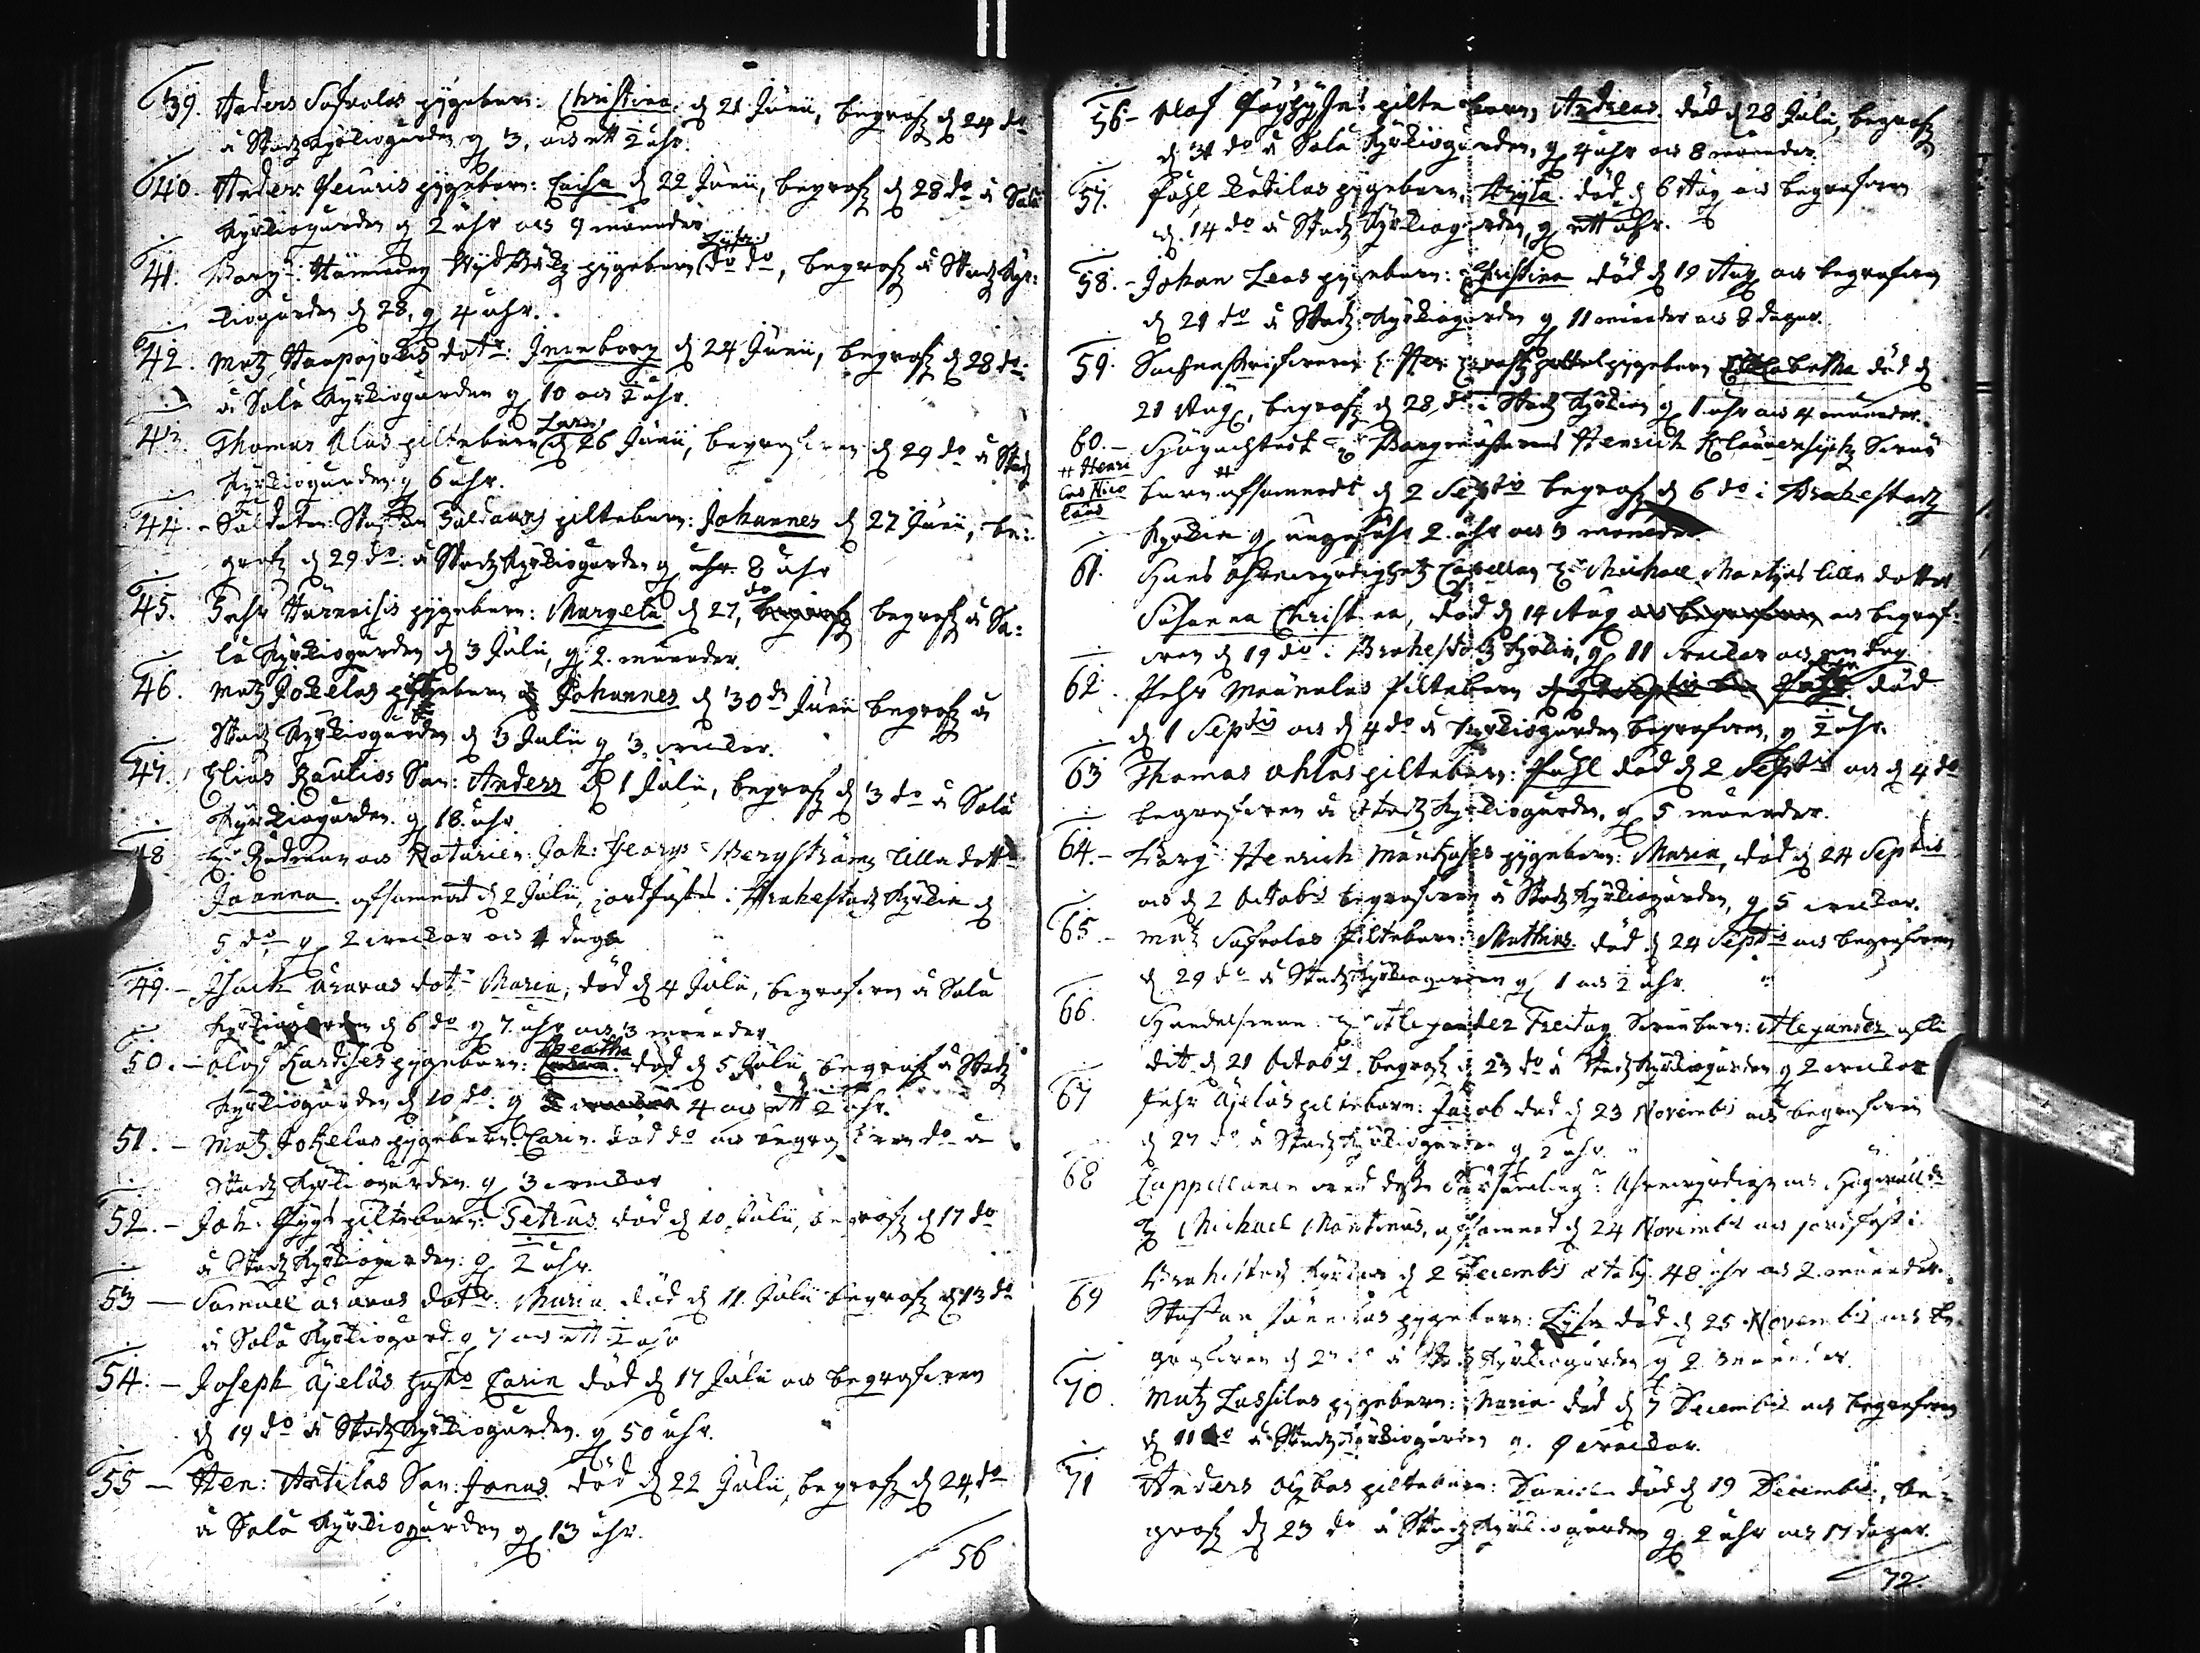 39. Anders Sofvolas pygebarn: Christina d 21 Junii, begrofz d 24 do
å Stadz Kyrkiogården g 3, och ett ½ åhr.
40. Anders pygebarn: Caisa d 22 Junii, begrofz d 28 do å Salå
Kyrkiogården g 2 åhr och 9 månader
41. Borg: Hemming pygebarn Lijsa do do, begrofz å Stadz Kyr:
kiogården d 28, g 4 åhr.
42. Matz Haapajokis dotr: Ingeborg d 24 Junii, begrofz d 28 do
å Salå Kyrkiogården g 10 och ½ åhr.
43. Thomas Olas piltebarn Lars d 26 Junii, begrafven d 29 do å Stadz
Kyrkiogården g 6 åhr.
44. Soldaten Staffan piltebarn: Johannes d 27 Junii, be:
grofz d 29 do: å Stadz Kyrkiogården g åhr. 8 åhr
45. Pehr pygebarn: Margeta d 27, do begrofz begrofz å Sa:
lå Kyrkiogården d 3 Julii, g 2. månader.
46. Matz Jokelas piltebarn Johannes d 30 do Junii begrofz å
Stadz Kyrkiogården d 3 Julii g 3. weckor.
47. Elias Rautios Son: Anders d 1 Julii, begrofz d 3 do å Salå
Kyrkiogården. g 18. åhr
48 Hr Rådman och Notarien: Joh: Georg Bergströms lilla dotr
Joanna. afsomnat d 2 Julii, jordfäster i Brahestadz Kyrkia d
5 do g 2 weckor och 1 dag
49. Isach Asavas dotr Maria, död d 4 Julii, begrafven å Salå
Kyrkiogården d 6 do g 7 åhr och 3 månader
50. Olof pygebarn: Beatha död d 5 Julii begrofz å Stadz
Kyrkiogården d 10 do. g 4 och ett ½ åhr.
51. Matz Jokelas pygebarn. Carin. död do och begrafven do å
Stadz Kyrkiogården. g 3 weckor
52. Joh. piltebarn: Petrus. död d 10 Julii, begrofz d 17 do
å Stadz Kyrkiogården: g ½ åhr.
53 Samuel Asavas dotr. Maria död d 11. Julii begrofz d 13 do
å Salå Kyrkiogård. g 7 och ett ½ åhr
54. Joseph Äjeläs hustro Carin död d 17 Julii och begrafven
d 19 do å Stadz Kyrkiogården. g 50 åhr.
55 Hen: Antilas Son: Jonas död d 22 Julii, begrofz d 24 do
å Salå Kyrkiogården g 13 åhr.
56
56 Olof pilte barn Andreas död d 28 Julii, begrofz
d 31 do å Salå Kyrkiogården, g 4 åhr och 8 månader.
57. Påhl Kotilas pygebarn, död d 6 Aug och begrafven
d. 14 do å Stadz Kyrkiogården, g ett åhr.
58. Johan Leas pygebarn: Christina död d 19 Aug och begrafven
d 21 do å Stadz Kyrkiogården g 11 månader och 8 dagar.
59. pygebarn Elisabetha död d
21 Aug, begrofz d 28 do i Stadz Kyrkian g 1 åhr och 4 månader.
60. Högachtat Hr Borgmästarens Henrich
# Henri
cus Nico
laus
barn # afsomnat d 2 Septr begrofz d 6 do i Brahestadz
Kyrkia g ungefähr 2. åhr och 3 månader
61. Hans Capellan Hr Michael Martini lilla dotter
Susanna Christina, död d 14 Aug och begrafven och begraf:
wen d 19 do i Brahestadz Kyrkia, g 11 weckor och en dag
62. Pehr Mainalas Piltebarn död
d 1 Septr och d 4 do å Kyrkiogården begrafven, g ½ åhr.
63 Thomas Ohlas piltebarn: Påhl död d 2 Septr och d 4 do
begrafven å Stadz Kyrkiogården, g 5 månader.
64. Borg: Henrich pygebarn: Maria, död d 24 Septbris
och d 2 Octobr begrafven å Stadz Kyrkiogården, g 5 weckor.
65. Matz Sofvolas Piltebarn: Mathias död d 24 Septbris och begrafven
d 29 do å Stadz Kyrkiogården g 1 och ½ åhr.
66. Handelsman: Hr Alexander Freitag Sonebarn: Alexander
d 21 Octobr. begrofz d 23 do å Stadz Kyrkiogården g 2 weckor
67 Pehr Äjeläs piltebarn: Jacob död d 23 Novembr och begrafven
d 27 do å Stadz Kyrkiogården g 2 åhr.
68 Cappellanen wed dess Församling: och
Hr Michael Martinus, afsomnad d 24 Novembr och jordfäst i
Brahestadz Kyrkia d 2 Decembr 48 åhr och 2. månader.
69 Staffan pygebarn: Lijsa död d 25 Novembris och be:
grafven d 27 do å Stadz Kyrkiogården g 2 månader.
70. Matz Lassilas pygebarn: Maria död d 7 Decembr och begrafven
d 11 do å Stadz Kyrkiogården g. 9 weckor.
71 Anders piltebarn: Daniel död d 19 Decembr, be:
grofz d 23 do å Stadz Kyrkiogården g 2 åhr och 17 dagar.
72.